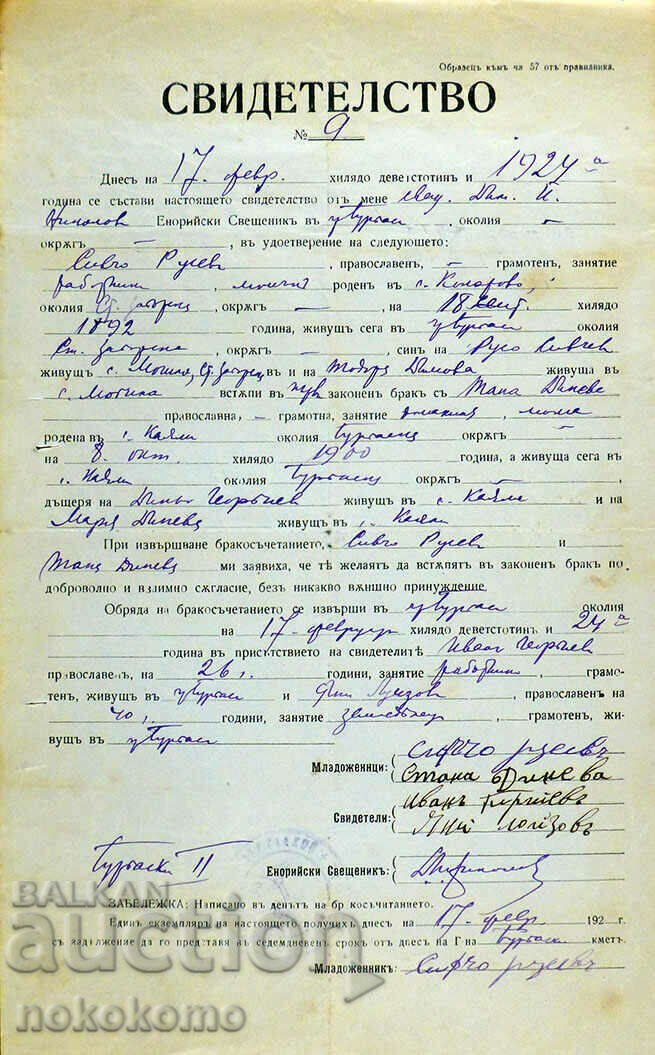 Образецъ къмъ чл 57 отъ правилника.
СВИДЕТЕЛСТВО
№ 9
Днесъ на 17. февр. хилядо деветстотин и 1924а
година се състави настоящето свидетелство отъ мене свещ. Дим. И.
Николов Енорийски Свещеникъ въ Бургас –, околия –
окрѫгъ –, въ удостверение на следующето:
Сивчо Русев, православенъ, – грамотенъ, занятие
работник, момъкъ роденъ въ с. Конарово,
околия Ст. Загорец, окрѫгъ –, на 18 хилядо
1892 година, живущъ сега въ Бургас околия
окрѫгъ –, синъ на Русо Сивчев
живущъ с. Могила, Ст. Загорец въ и на Тодора Димова живуща въ
с. Могила встѫпи въ първ законенъ бракъ съ Тана Динева
православна, – грамотна, занятие домакиня, мома
родена въ с. Каяли околия Бургаска окрѫгъ –
на 8. окт. хилядо 1900 година, а живуща сега въ
с. Каяли околия Бургаска окрѫгъ –,
дъщеря на Диньо Георгиев живущъ въ с. Каяли и на
Мария Динева живущъ въ с. Каяли
При извършване бракосъчетанието, Сивчо Русев и
Тана Динева ми заявиха, че тѣ желаятъ да встѫпятъ въ законенъ бракъ по
доброволно и взаимно съгласие, безъ никакво вѫншно принуждение
Обряда на бракосъчетанието се извърши въ Бургас околия
на 17 февруари хилядо деветстотинъ и 24а
година въ присѫтствието на свидетелитѣ Иван Георгиев
православенъ, на 26 г. години, занятие работник, грамо-
тенъ, живущъ въ Бургас и Яни Лоизов, православенъ на
40 г. години, занятие земледелец, грамотенъ, жи-
вущъ въ Бургас
Младоженци: Сифчо Русевъ
Стана Динева
Свидетели: Иванъ Гиргиевъ
Яни Лоизовъ
Бургаски II
Енорийски Свещеникъ: Д. Николов
ЗАБЕЛЕЖКА: Написано въ денътъ на бр косъчитанието.
Единъ екземпляръ на настоящето получихъ днесъ на 17. февр. 192 г.
съ задължение да го представя въ седемдневенъ срокъ отъ днесъ на Г-на Бургаски кметъ.
Младоженикъ: Сифчо Русевъ
BALKAN
auction
nokokomo